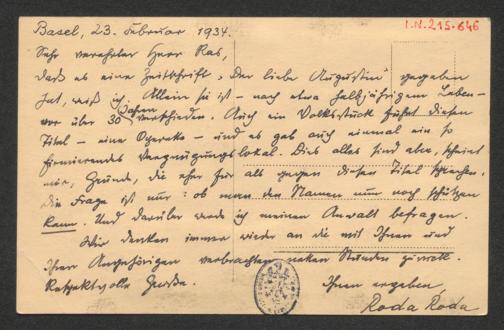 Basel, 23. Februar 1934.
I.N. 215.646
Sehr verehrter Herr Ras,
daß es eine Zeitschrift „Der liebe Augustin" gegeben
hat, weiß ich. Allein sie ist – nach etwa halbjährigem Leben –
vor über 30 Jahren verschieden. Auch ein Volksstück führt diesen
Titel – eine Operette – und es gab auch einmal ein so
firmierendes Vergnügungslokal. Dies alles sind aber, scheint
mir, Gründe, die eher für als gegen diesen Titel sprechen.
Die Frage ist nur: ob man den Namen nun noch schützen
kann. Und darüber werde ich meinen Anwalt befragen.
Wir denken immer wieder an die mit Ihnen und
Ihren Angehörigen verbrachten netten Stunden zurück.
Respektvolle Grüße.
Ihnen ergeben,
Roda Roda